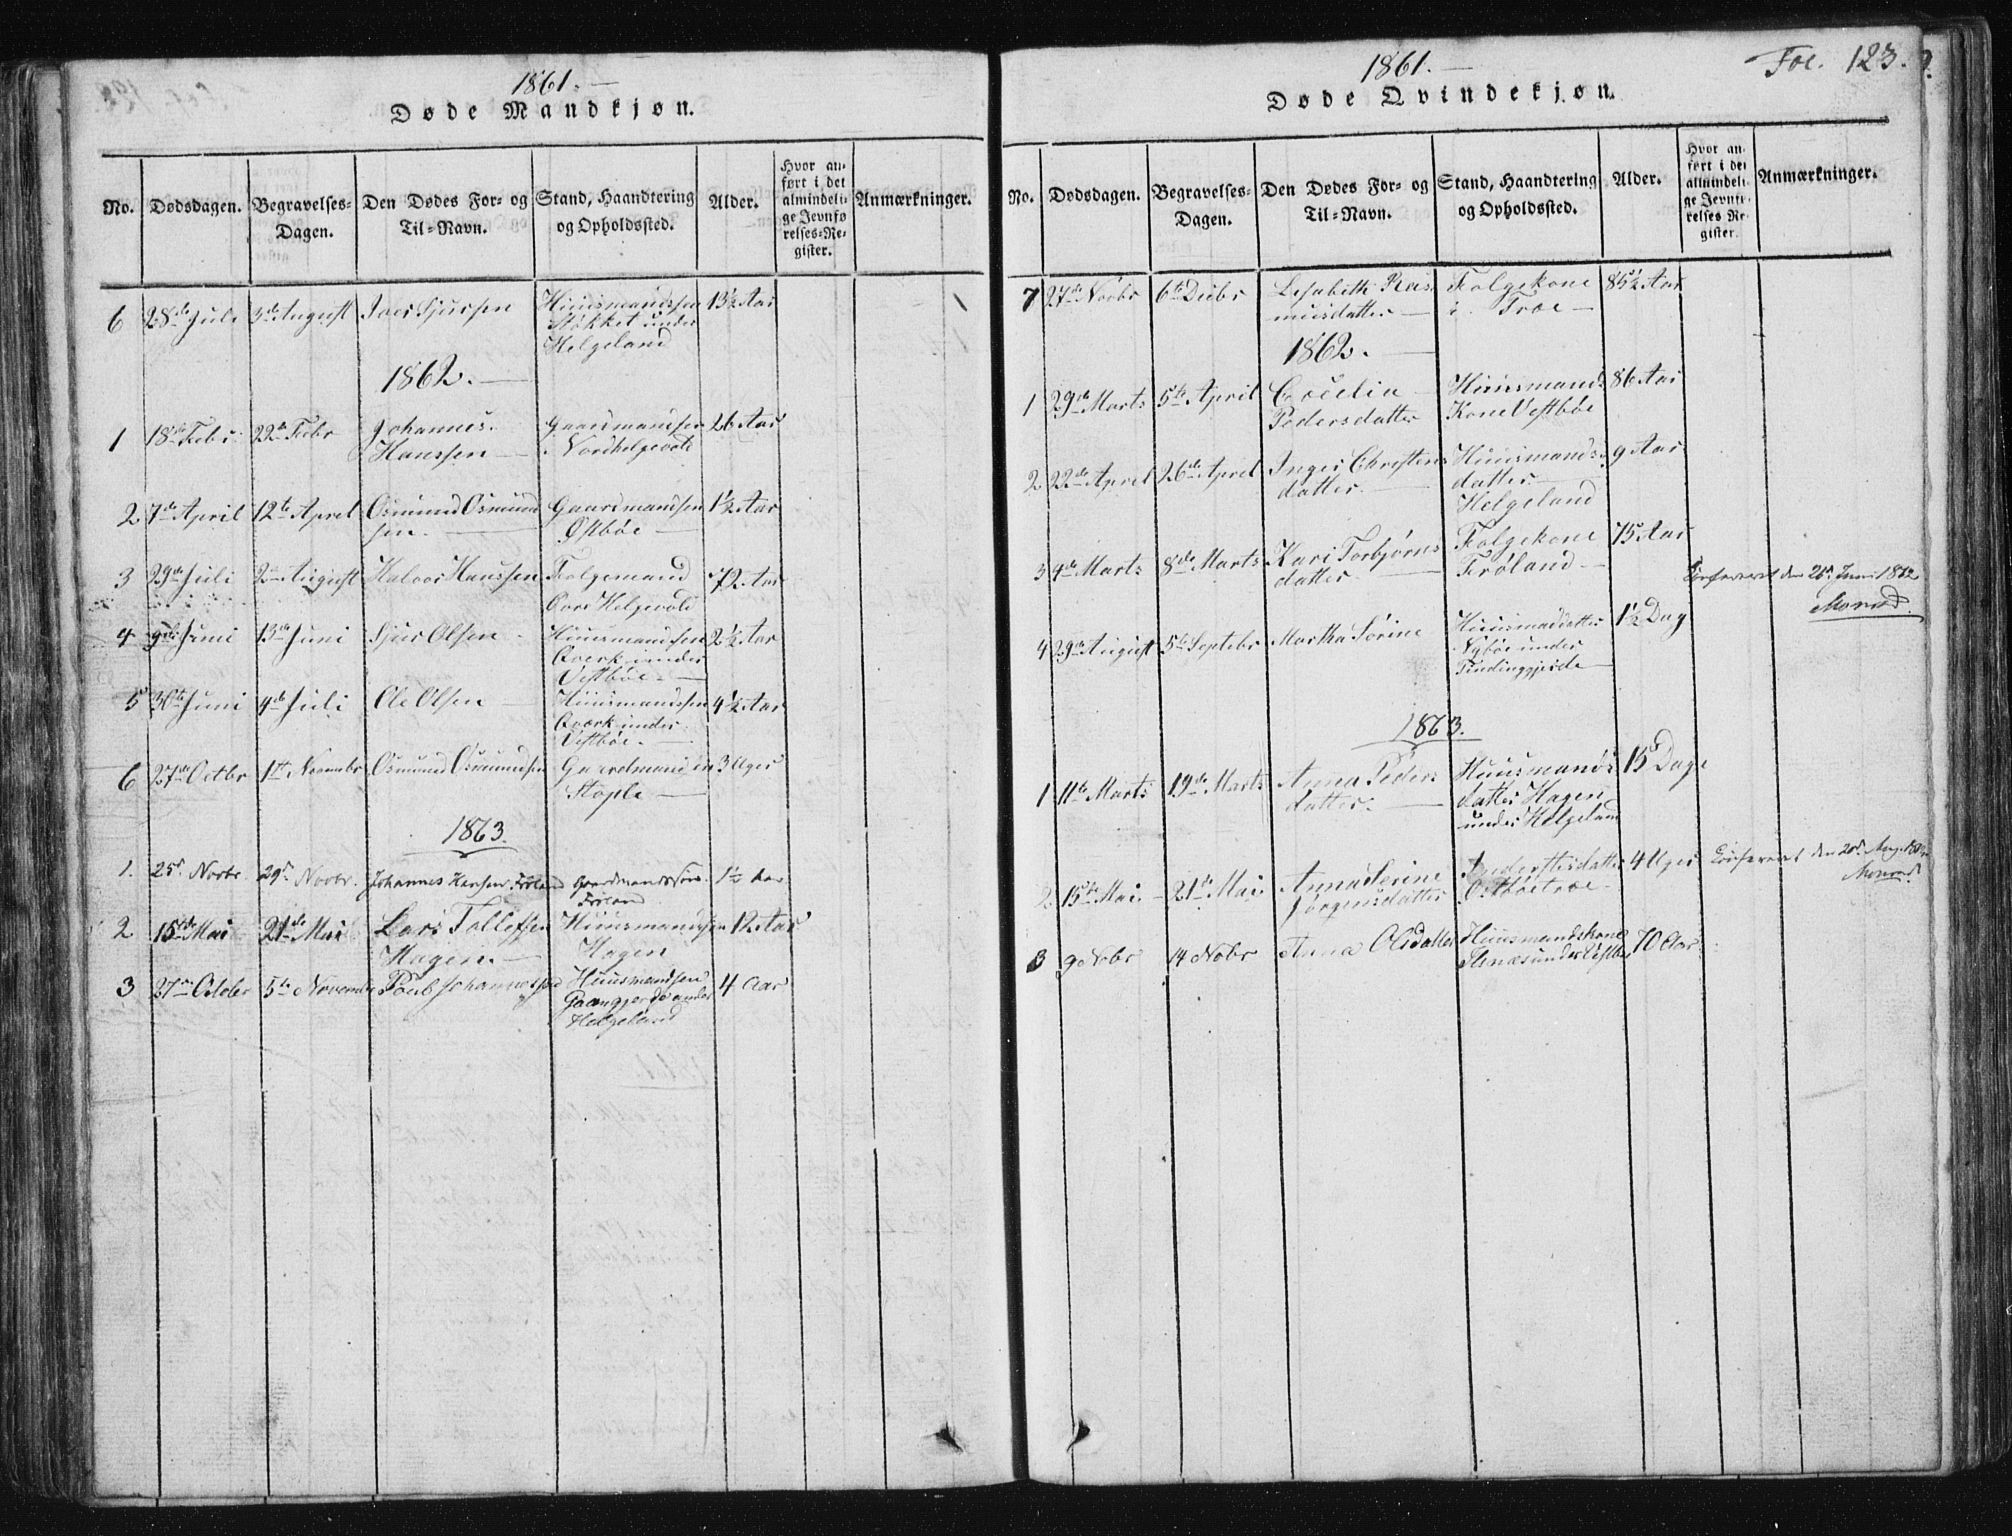 1861.
Døde Mandkjøn.
No. Dødsdagen. Begravelses-Dagen. Den Dødes For- og Til-Navn. Stand, Haandtering og Opholdssted. Alder. Hvor anført i det almindelige Jevnførelses-Register. Anmærkninger.
6 28de Juli 3de August Iver Sjursen Huusmandssen
Stokket under
Helgeland 13½ Aar
1862.
1 18de Febr. 22de Febr Johannes Gaardmandsen 26 Aar
Hanssen Nordhelgevold
2 7de April 12te April Osmund Osmund Gaardmandsen 1½ Aar
sen. Østbøe
3 29de Juli 2den August Haloor Hanssen Folgemand 72 Aar
Øvre Helgevold
4 9de Juni 13de Juni Sjur Olsen Huusmandsen 2½ Aar
Qværk under
Vestbøe
5 30te Juni 4de Juli Ole Olsen Huusmandssen 4½ Aar
Qværk under
Vestbøe
6 27de Octbr 1ste Novembr Osmund Osmundsen Gaardmandsen 3 Uger
Stople
1863.
1. 25de Novbr. 29de Novbr. Johannes Hansen Frøland Gaardmandssøn 1½ Aar
Frøland
2 15de Mai 21de Mai Lars Tollefsen Huusmandsen 12 Aar
Hagen Hagen
3 27de October 5te November Poul Johannessen Huusmandsen 4 Aar
under
Helgeland
Fol. 123.
1861.
Døde Qvindekjøn.
No. Dødsdagen. Begravelses-Dagen. Den Dødes For- og Til-Navn. Stand, Haandtering og Opholdssted. Alder. Hvor anført i det almindelige Jevnførelses-Register. Anmærkninger.
7 27de Novbr 6te Decbr Lisabeth Ras Folgekone 85½ Aar
musdatter i Troe
1862.
1 29de Marts 5te April Cecelia Huusmands 86 Aar
Pedersdatter Kone Vestbøe
2 22de April 26de April Inger Christens Huusmands 9 Aar
datter datter
Helgeland
3 4de Marts 8de Marts Kari Torbjørns Folgekone 75 Aar
datter Frøland
Confereret den 26de Juni 1862
Monrad.
4 29de August 5te Septebr Martha Sørine Huusmaddatter 1½ Dag
Nybøe under
1863.
1 11te Marts 19de Marts Anna Peders Huusmands 15 Dage
datter. datter Hagen
under Helgeland
2 15de Mai 21de Mai Anna Serine 4 Uger Confereret den 20de Aug.
Jørgensdatter Østbøetroe Monrad
3 9 Nobr 14 Nobr Anna Olsdatter Huusmandskone 70 Aar
under Vestbø